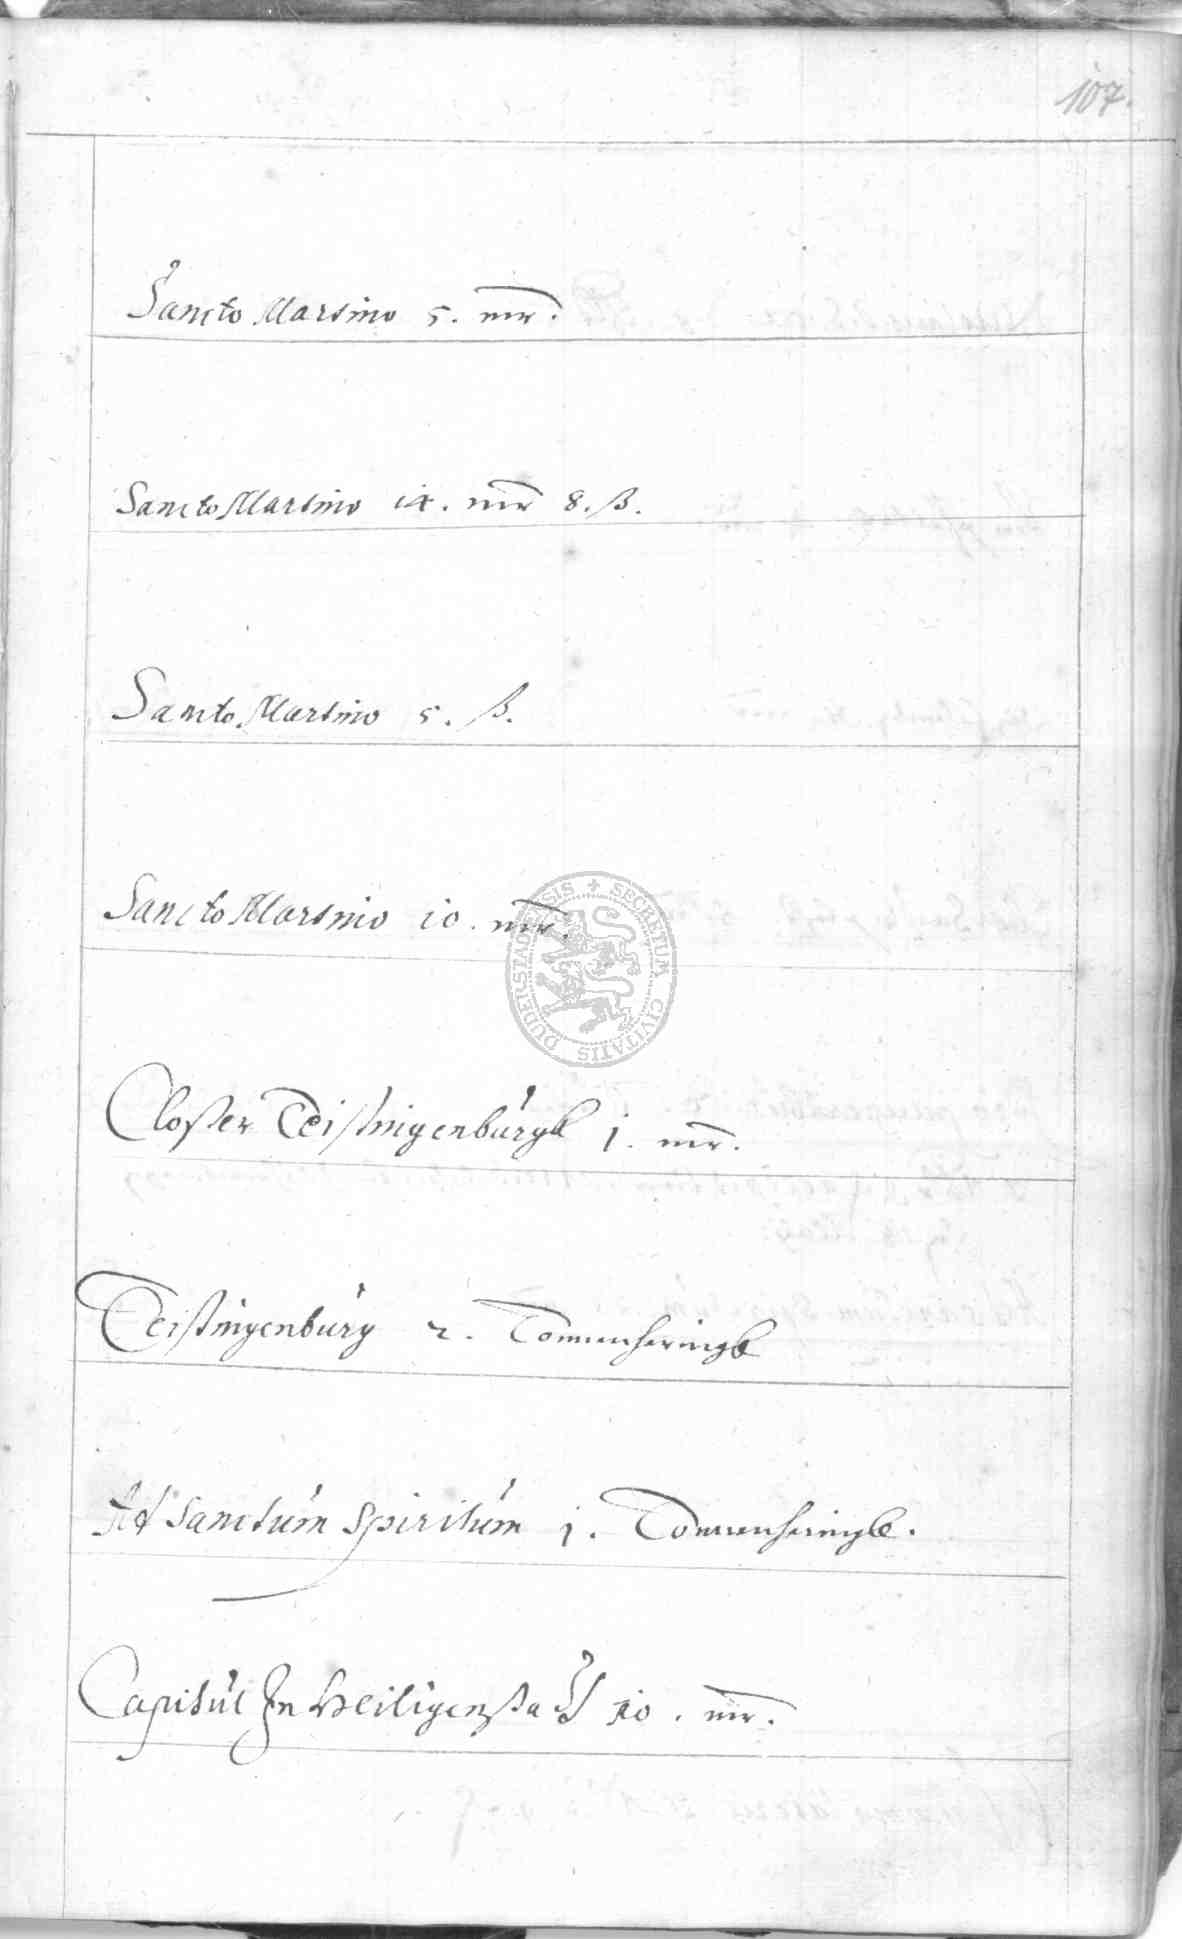 107.
Sancto Martino 5. mr.
Sancto Martino 14. mr 8. ß.
Sancto Martino 5. ß.
Sancto Martino 10. mr.
Closter Teistingenburgk 1. mr.
Teistingenburg 2. Tonnenheringk
Ad Sanctum Spiritum 1. Tonnenheringk.
Capitul In Heiligenstadt 10. mr.
SECRETUM CIVITATIS DUDERSTADENSIS